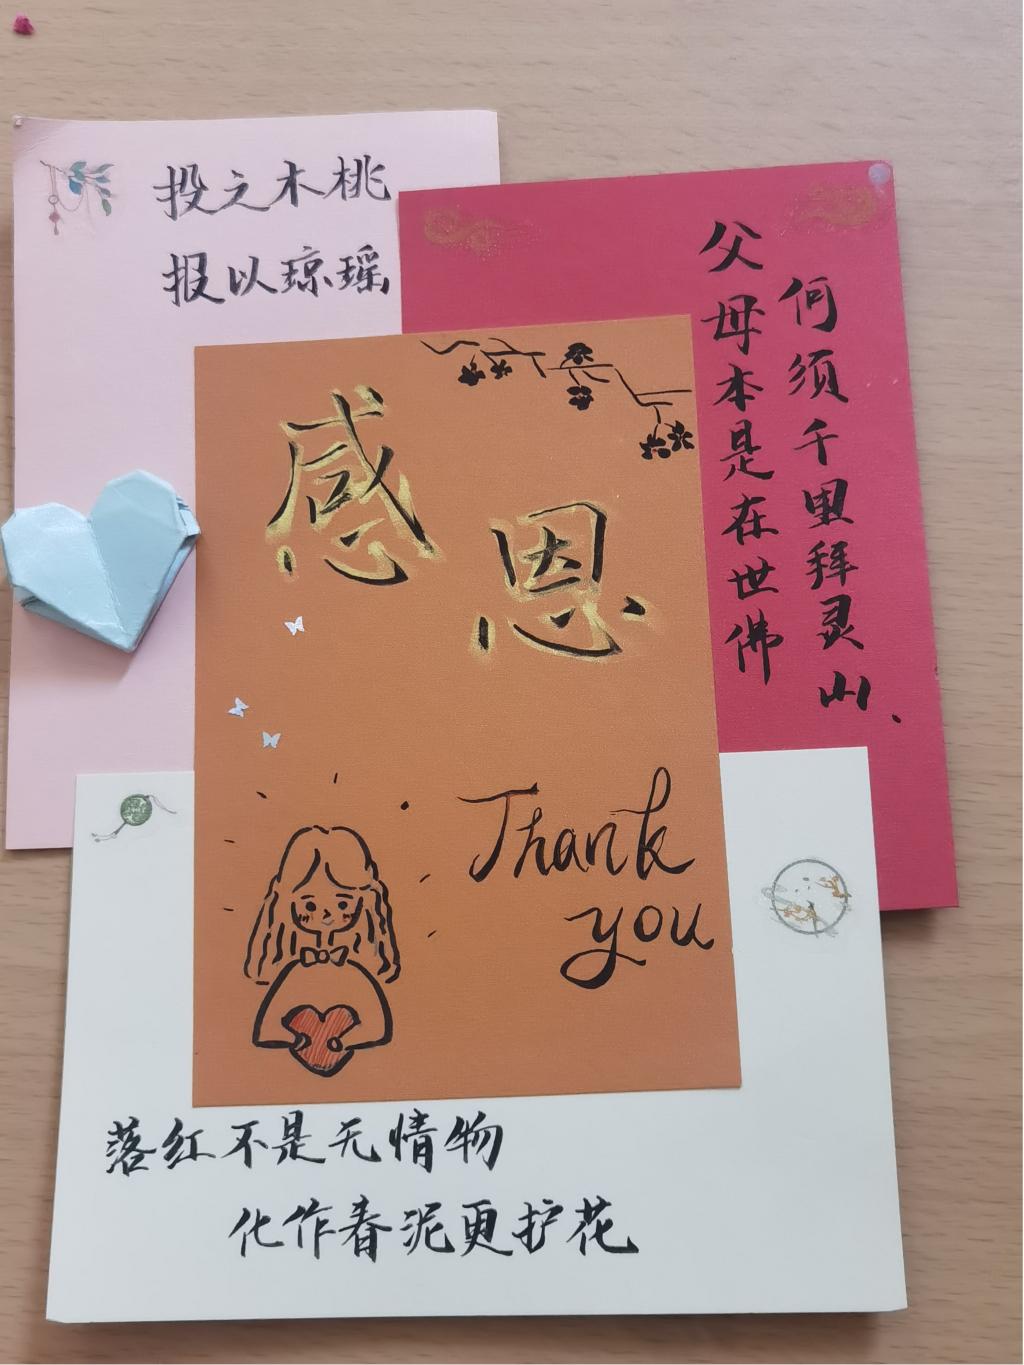 投之木桃
报以琼瑶
父母本是在世佛
何须千里拜灵山、
感恩
Thank
you
落红不是无情物
化作春泥更护花